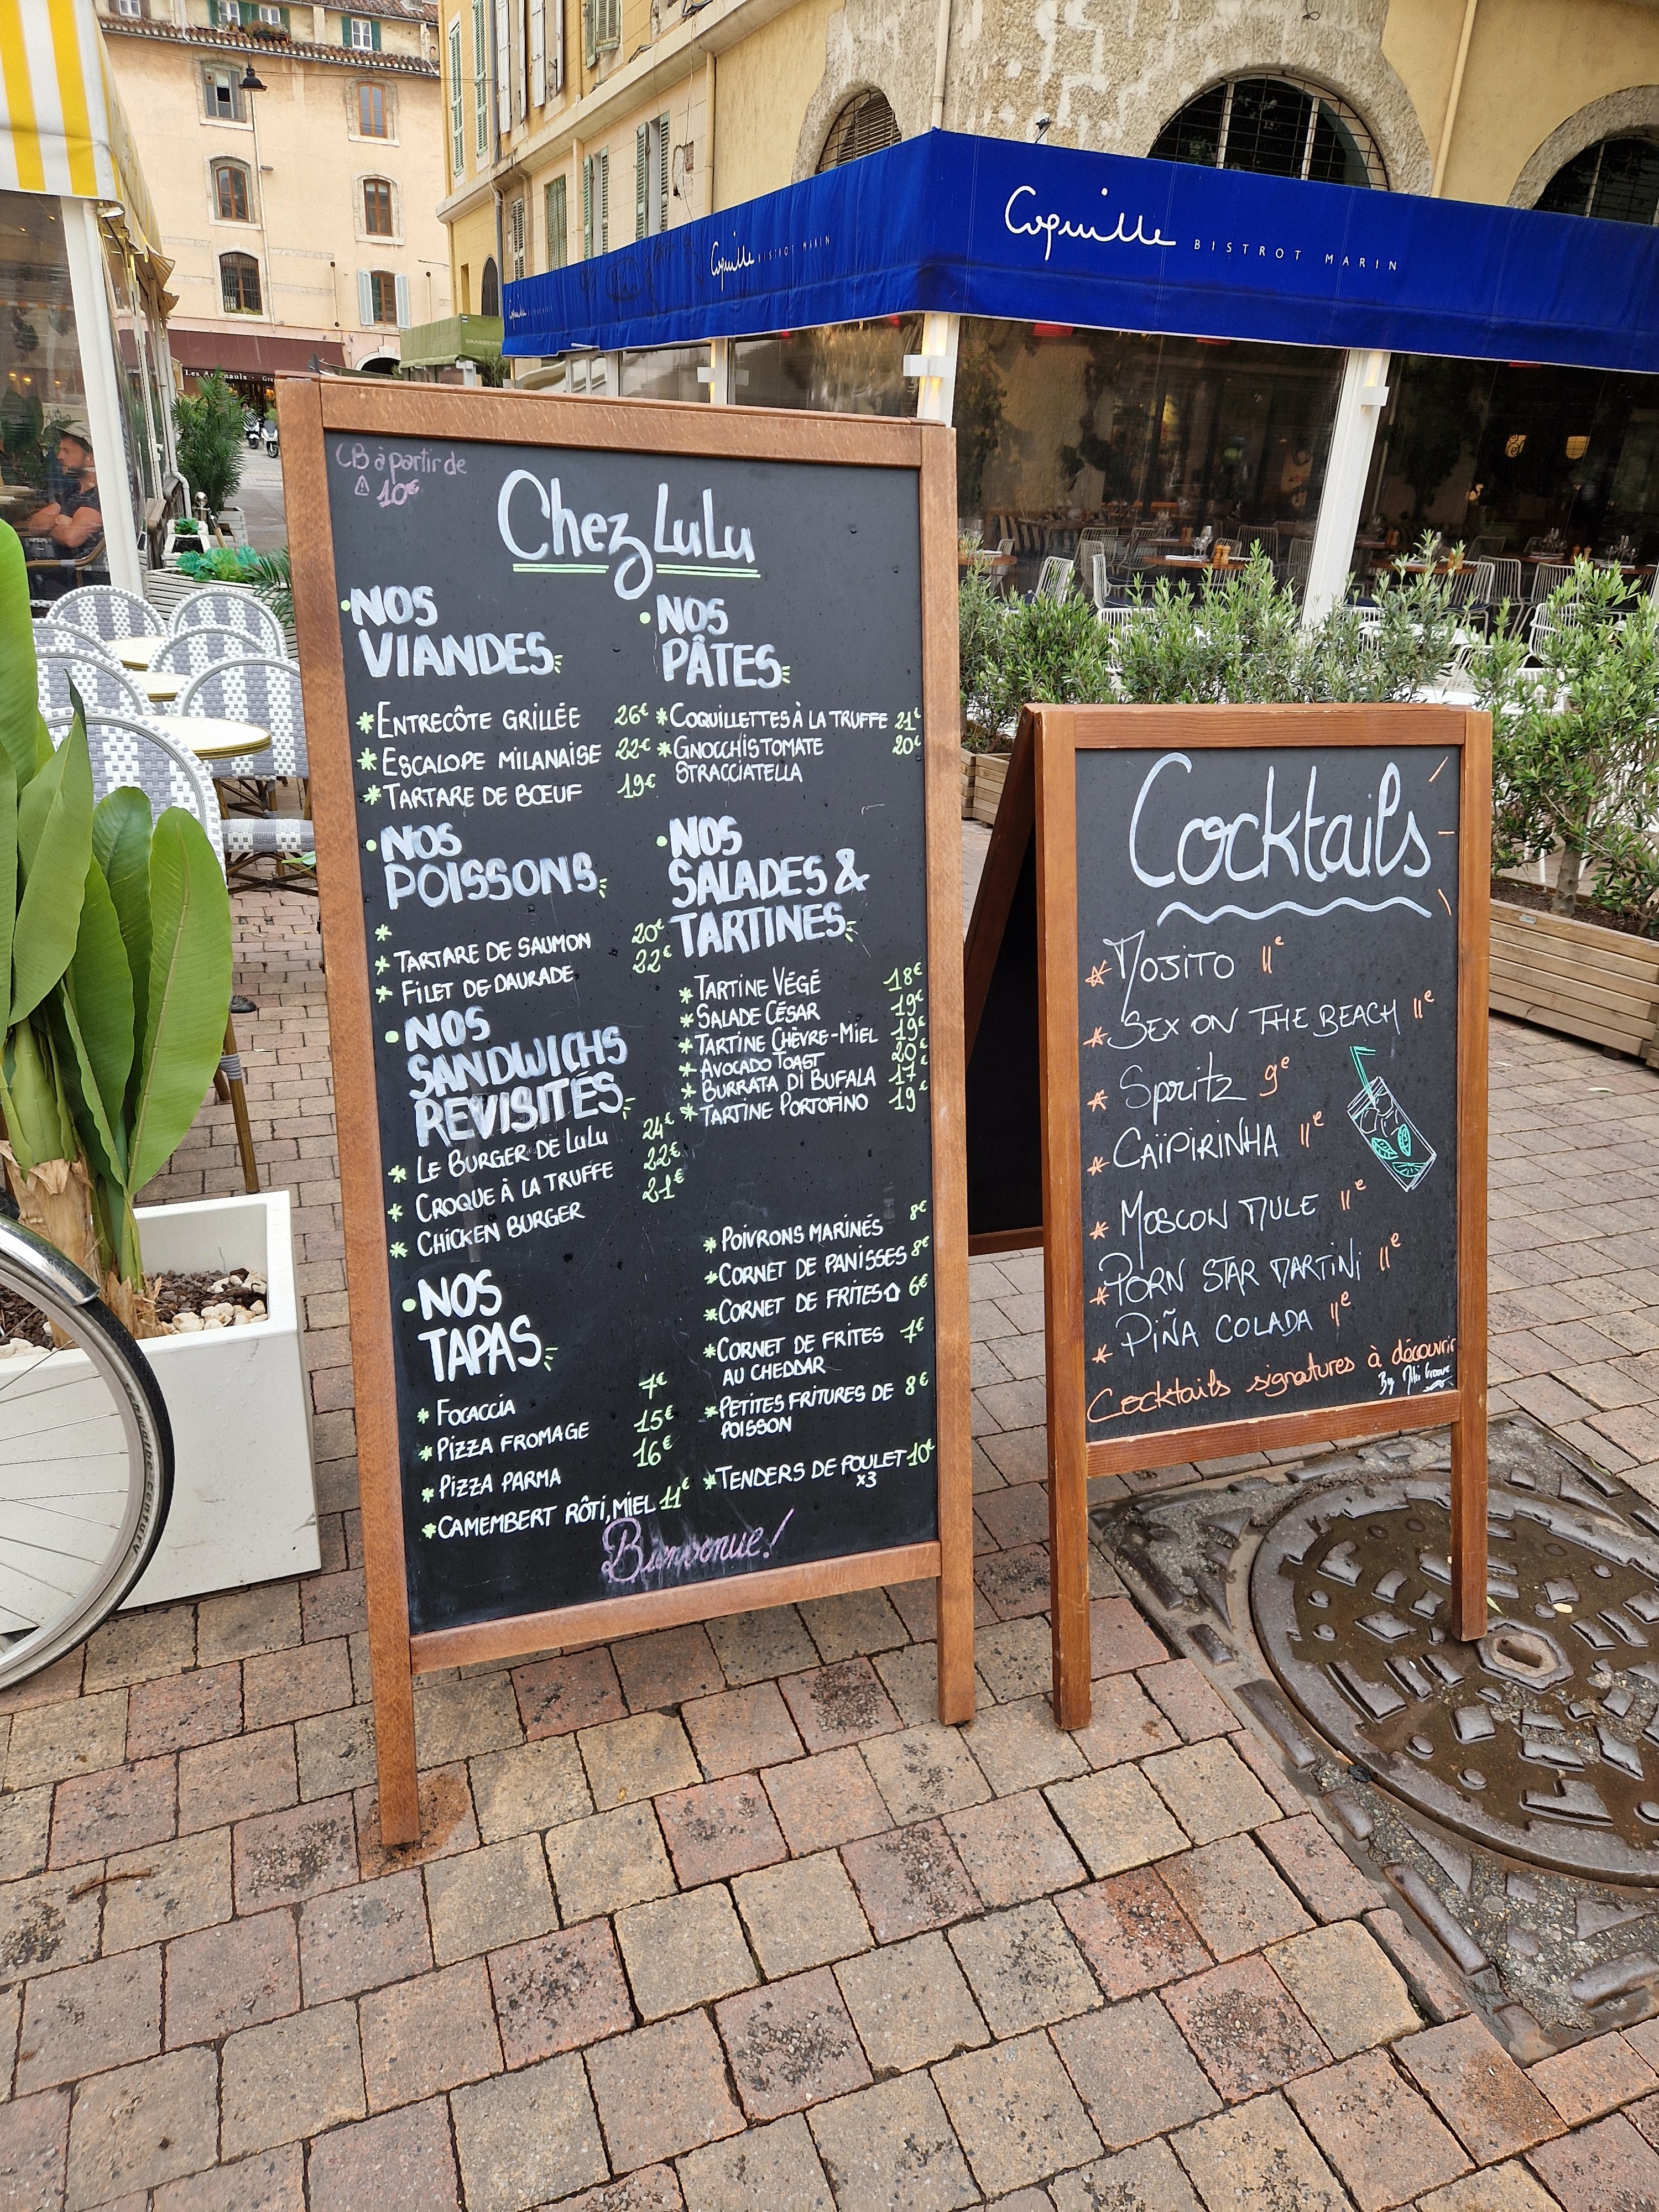 Coquille BISTROT MARIN
Coquille BISTROT MARIN
CB à partir de
10€
Chez LuLu
NOS
VIANDES
*ENTRECÔTE GRILLÉE 26€
*ESCALOPE MILANAISE 22€
*TARTARE DE BŒUF 19€
NOS
POISSONS
*
*TARTARE DE SAUMON 20€
*FILET DE DAURADE 22€
NOS
SANDWICHS
REVISITÉS
*LE BURGER DE LULU 24€
*CROQUE À LA TRUFFE 22€
*CHICKEN BURGER 21€
NOS
TAPAS
*FOCACCIA 7€
*PIZZA FROMAGE 15€
*PIZZA PARMA 16€
*CAMEMBERT RÔTI, MIEL 11€
NOS
PÂTES
*COQUILLETTES À LA TRUFFE 21€
*GNOCCHIS TOMATE 20€
STRACCIATELLA
NOS
SALADES &
TARTINES
*TARTINE VÉGÉ 18€
*SALADE CÉSAR 19€
*TARTINE CHÈVRE-MIEL 19€
*AVOCADO TOAST 20€
*BURRATA DI BUFALA 17€
*TARTINE PORTOFINO 19€
*POIVRONS MARINÉS 8€
*CORNET DE PANISSES 8€
*CORNET DE FRITES 6€
*CORNET DE FRITES 7€
AU CHEDDAR
*PETITES FRITURES DE 8€
POISSON
*TENDERS DE POULET 10€
x3
Bienvenue!
Cocktails
*MOJITO 11€
*SEX ON THE BEACH 11€
*Spritz 9€
*CAÏPIRINHA 11€
*MOSCOW MULE 11€
*PORN STAR MARTINI 11€
*PIÑA COLADA 11€
Cocktails signatures à découvrir
By